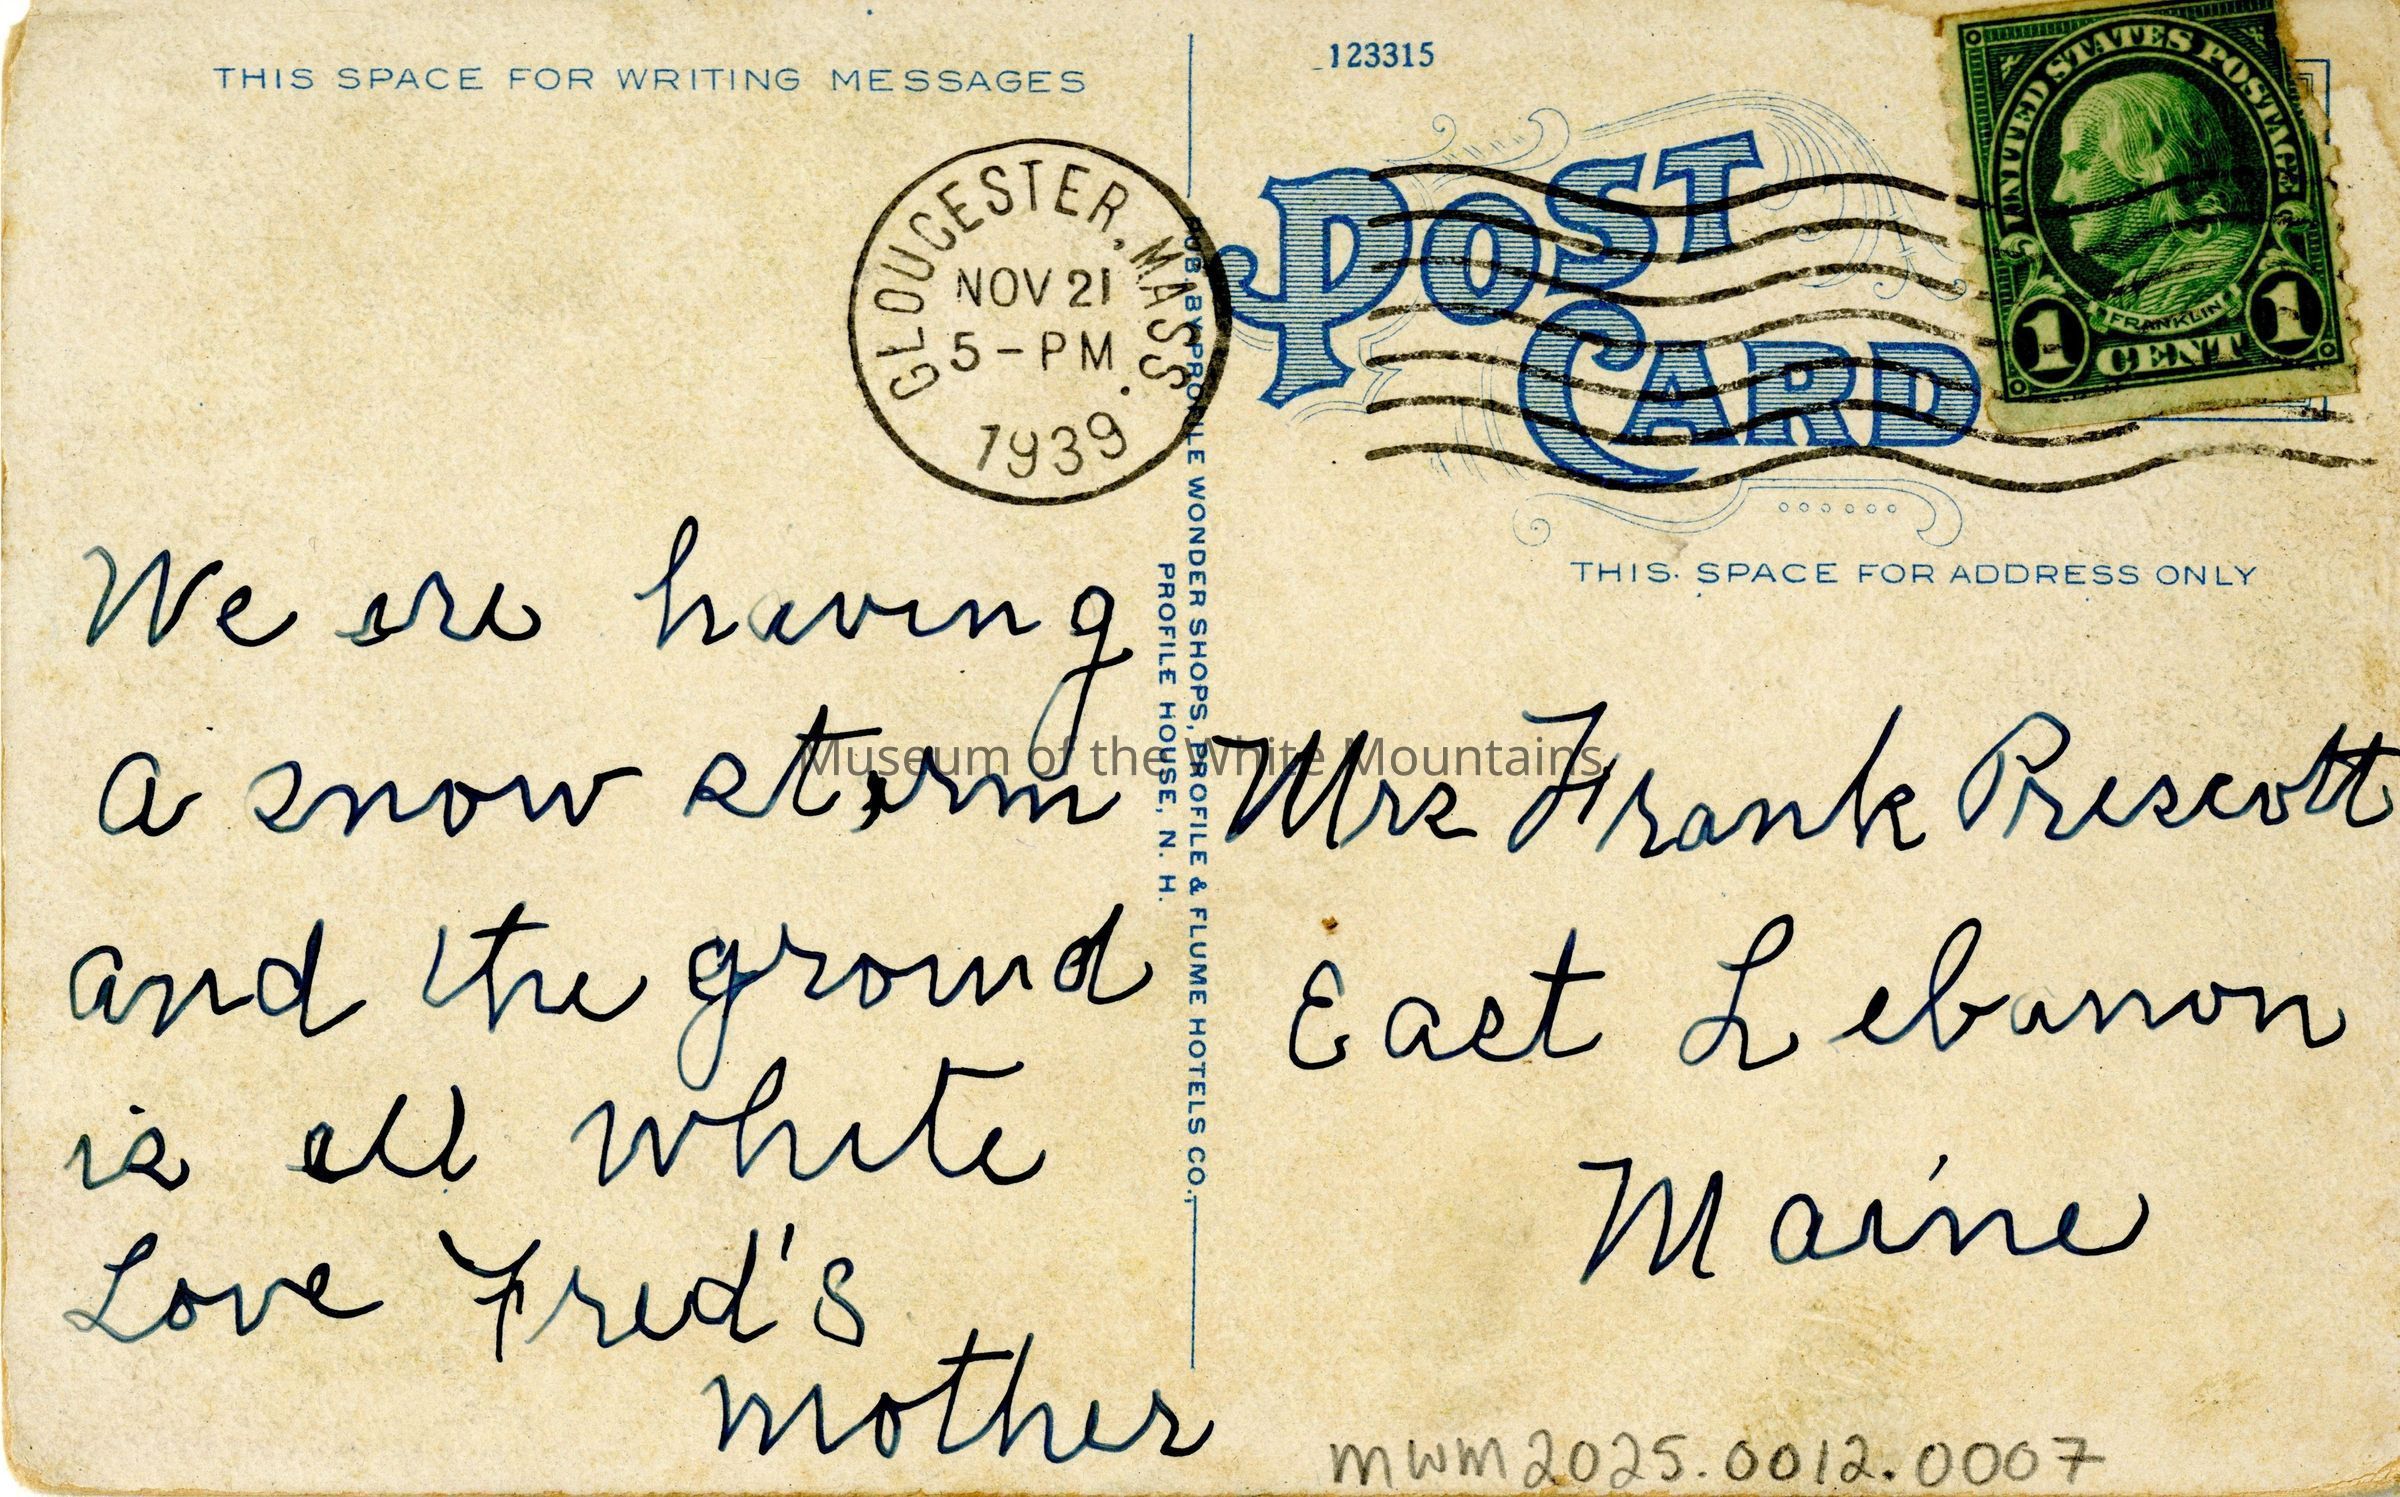 THIS SPACE FOR WRITING MESSAGES
GLOUCESTER, MASS.
NOV 21
5-PM
1939
We are having
a snow storm
and the ground
is all white
Love Fred's
mother
PUB. BY PROFILE WONDER SHOPS, PROFILE & FLUME HOTELS CO.,
PROFILE HOUSE, N. H.
123315
POST
CARD
UNITED STATES POSTAGE
FRANKLIN
1 CENT 1
THIS SPACE FOR ADDRESS ONLY
Mrs Frank Prescott
East Lebanon
Maine
Museum of the White Mountains
MWM2025.0012.0007